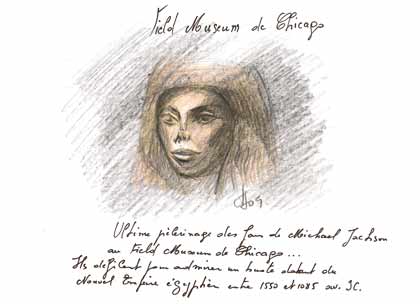 Field Museum de Chicago
09
Ultime pèlerinage des fans de Michael Jackson
au Field Museum de Chicago...
Ils défilent pour admirer un buste datant du
Nouvel Empire égyptien entre 1550 et 1085 av. JC.